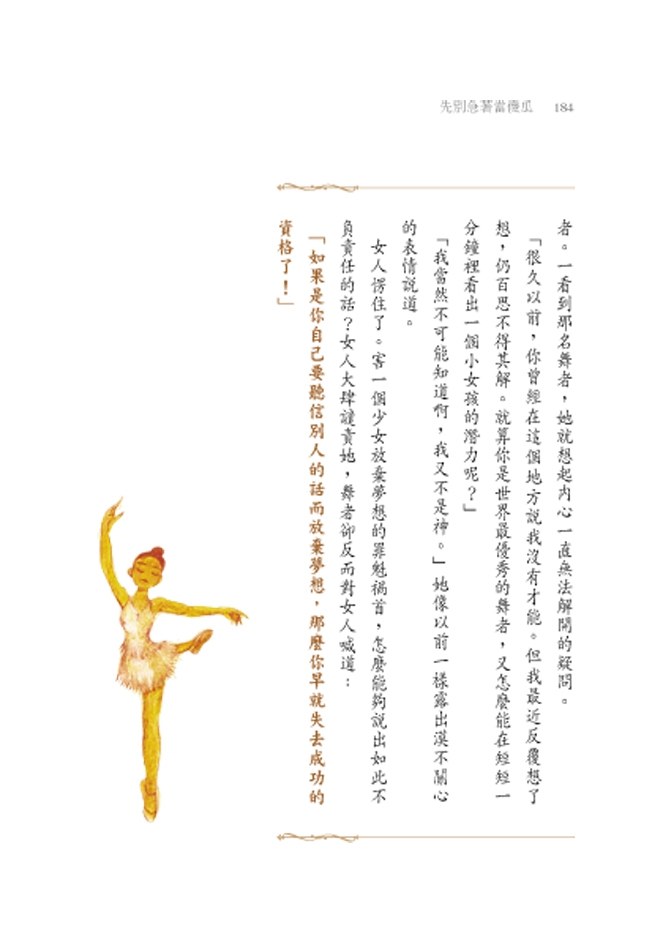 先別急著當傻瓜 184
者。一看到那名舞者，她就想起內心一直無法解開的疑問。
「很久以前，你曾經在這個地方說我沒有才能。但我最近反覆想了
想，仍百思不得其解。就算你是世界最優秀的舞者，又怎麼能在短短一
分鐘裡看出一個小女孩的潛力呢？」
「我當然不可能知道啊，我又不是神。」她像以前一樣露出漠不關心
的表情說道。
女人愣住了。害一個少女放棄夢想的罪魁禍首，怎麼能夠說出如此不
負責任的話？女人大肆譴責她，舞者卻反而對女人喊道：
「如果是你自己要聽信別人的話而放棄夢想，那麼你早就失去成功的
資格了！」